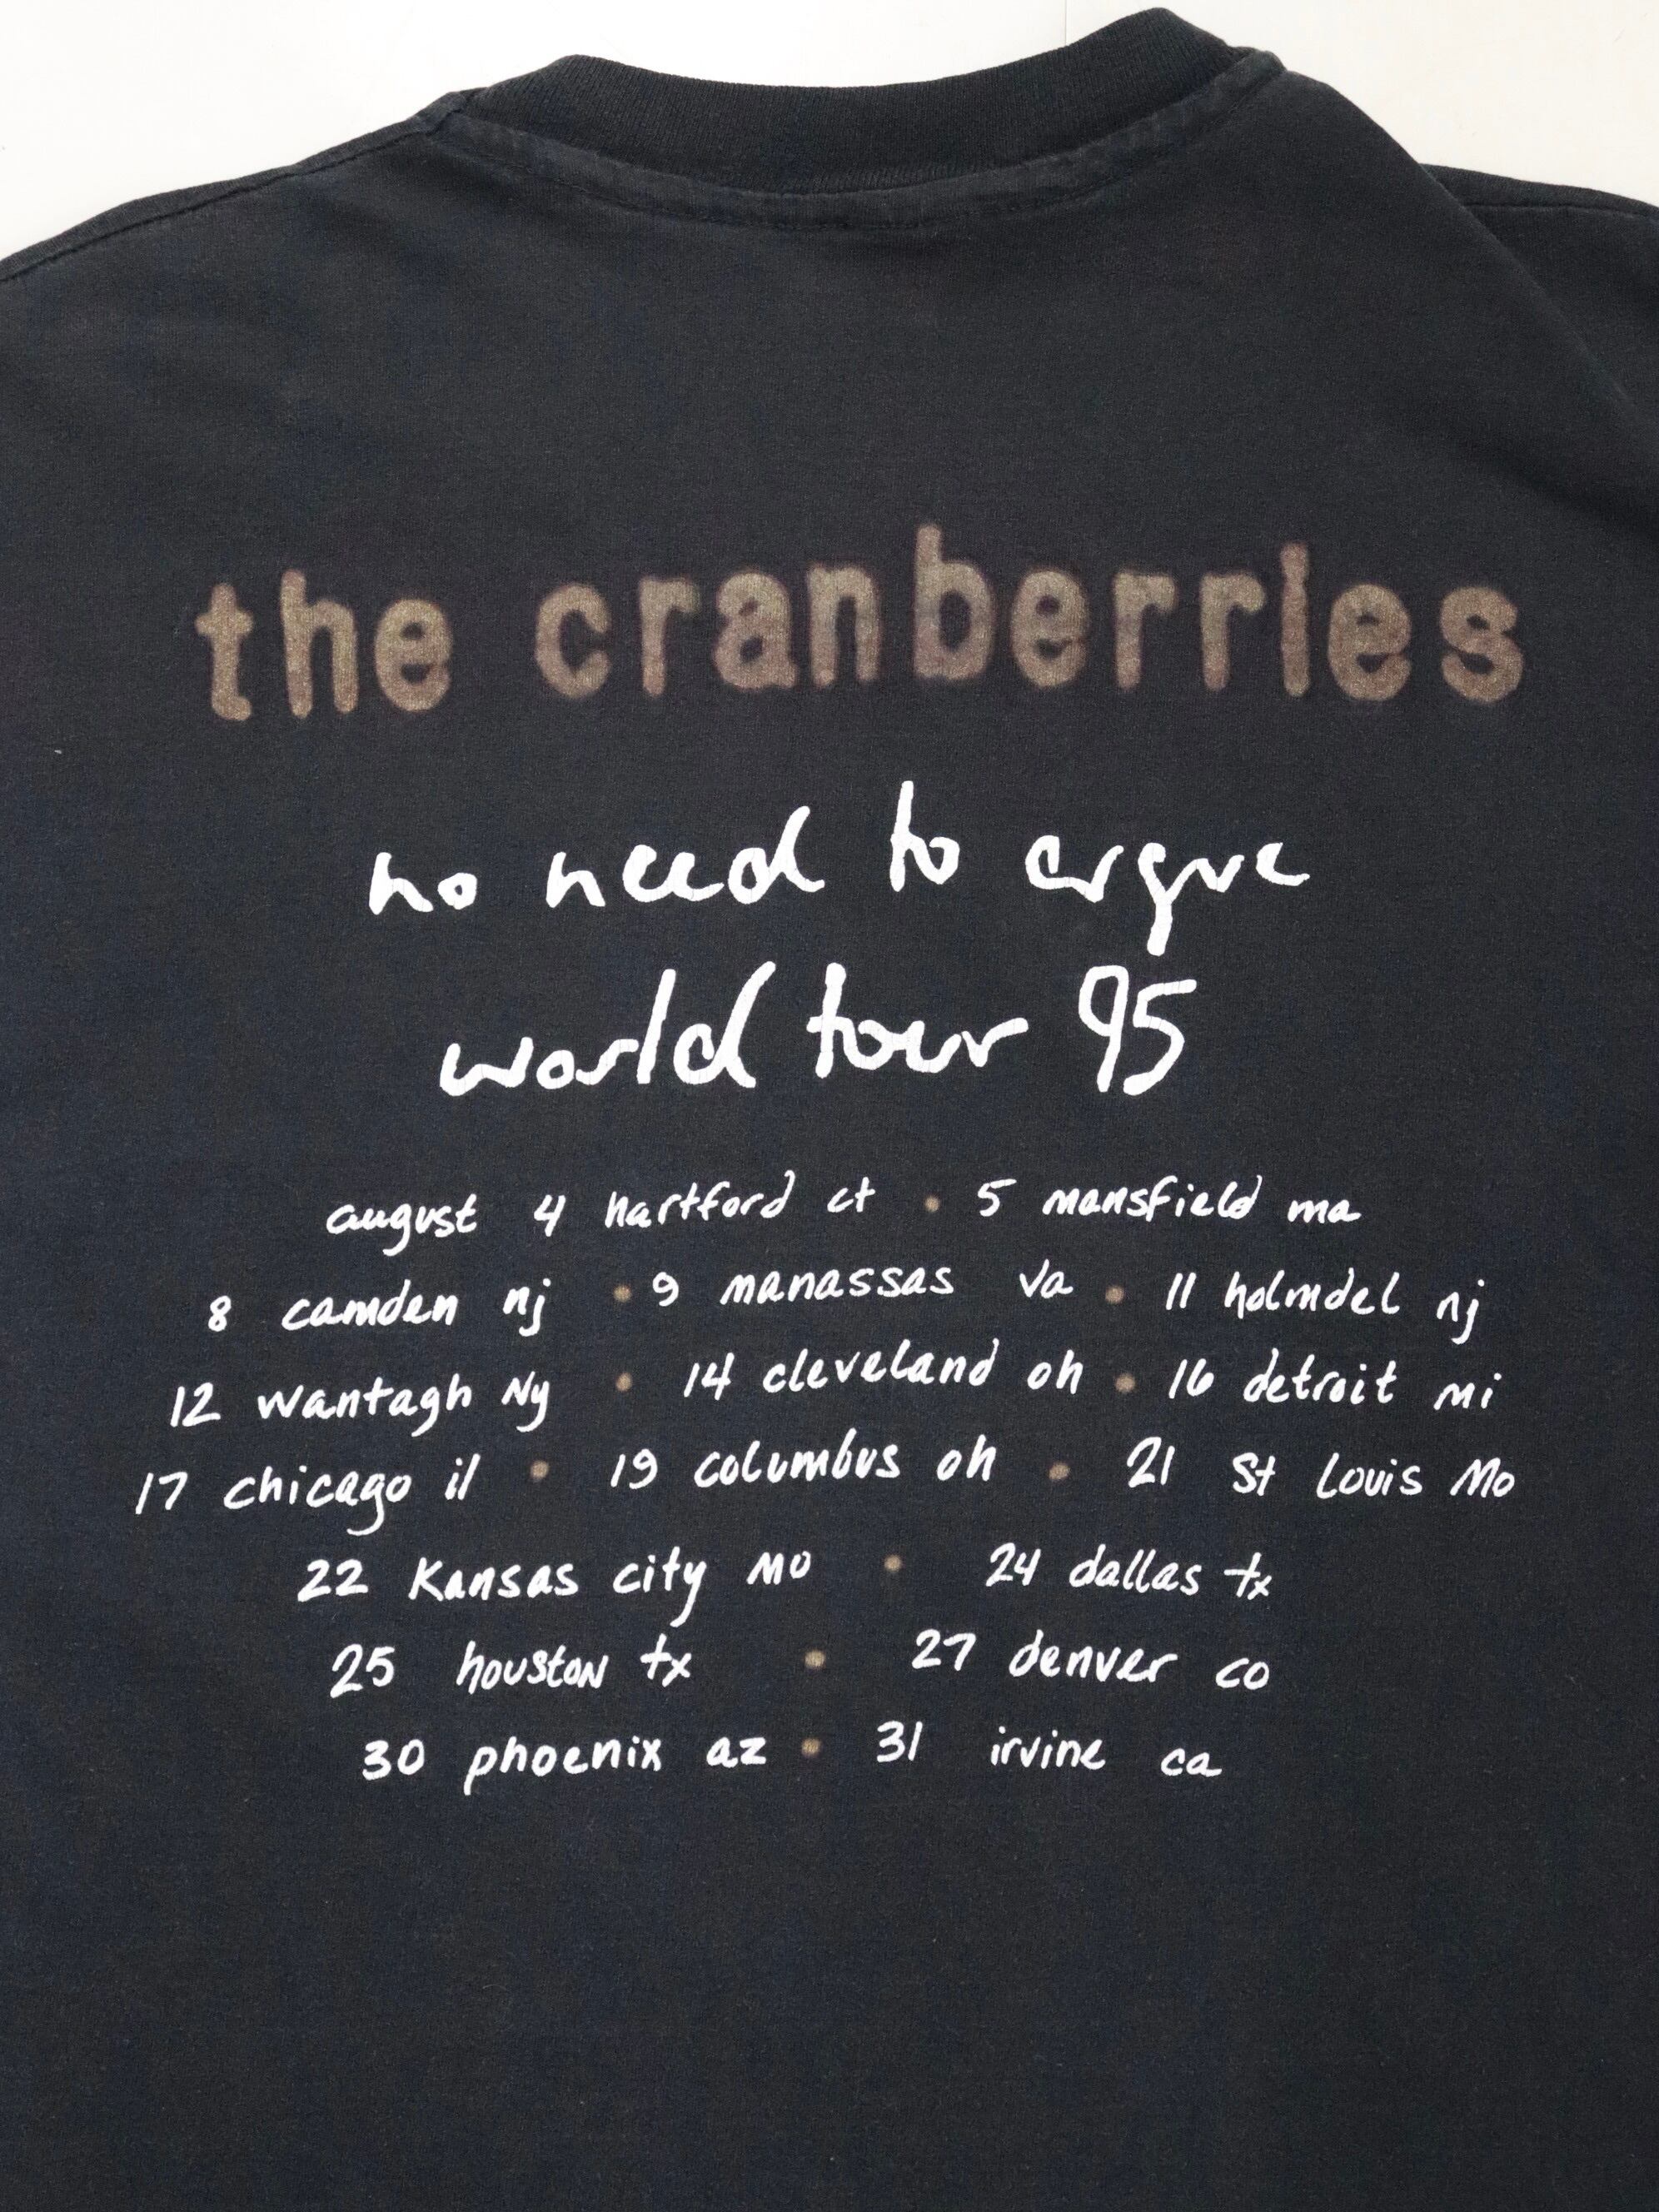 the cranberries
no need to argue
world tour 95
august 4 hartford ct • 5 mansfield ma
8 camden nj • 9 manassas va • 11 holmdel nj
12 wantagh Ny • 14 cleveland oh • 16 detroit mi
17 chicago il • 19 columbus oh • 21 St Louis Mo
22 Kansas city MO • 24 dallas tx
25 houston tx • 27 denver co
30 phoenix az • 31 irvine ca